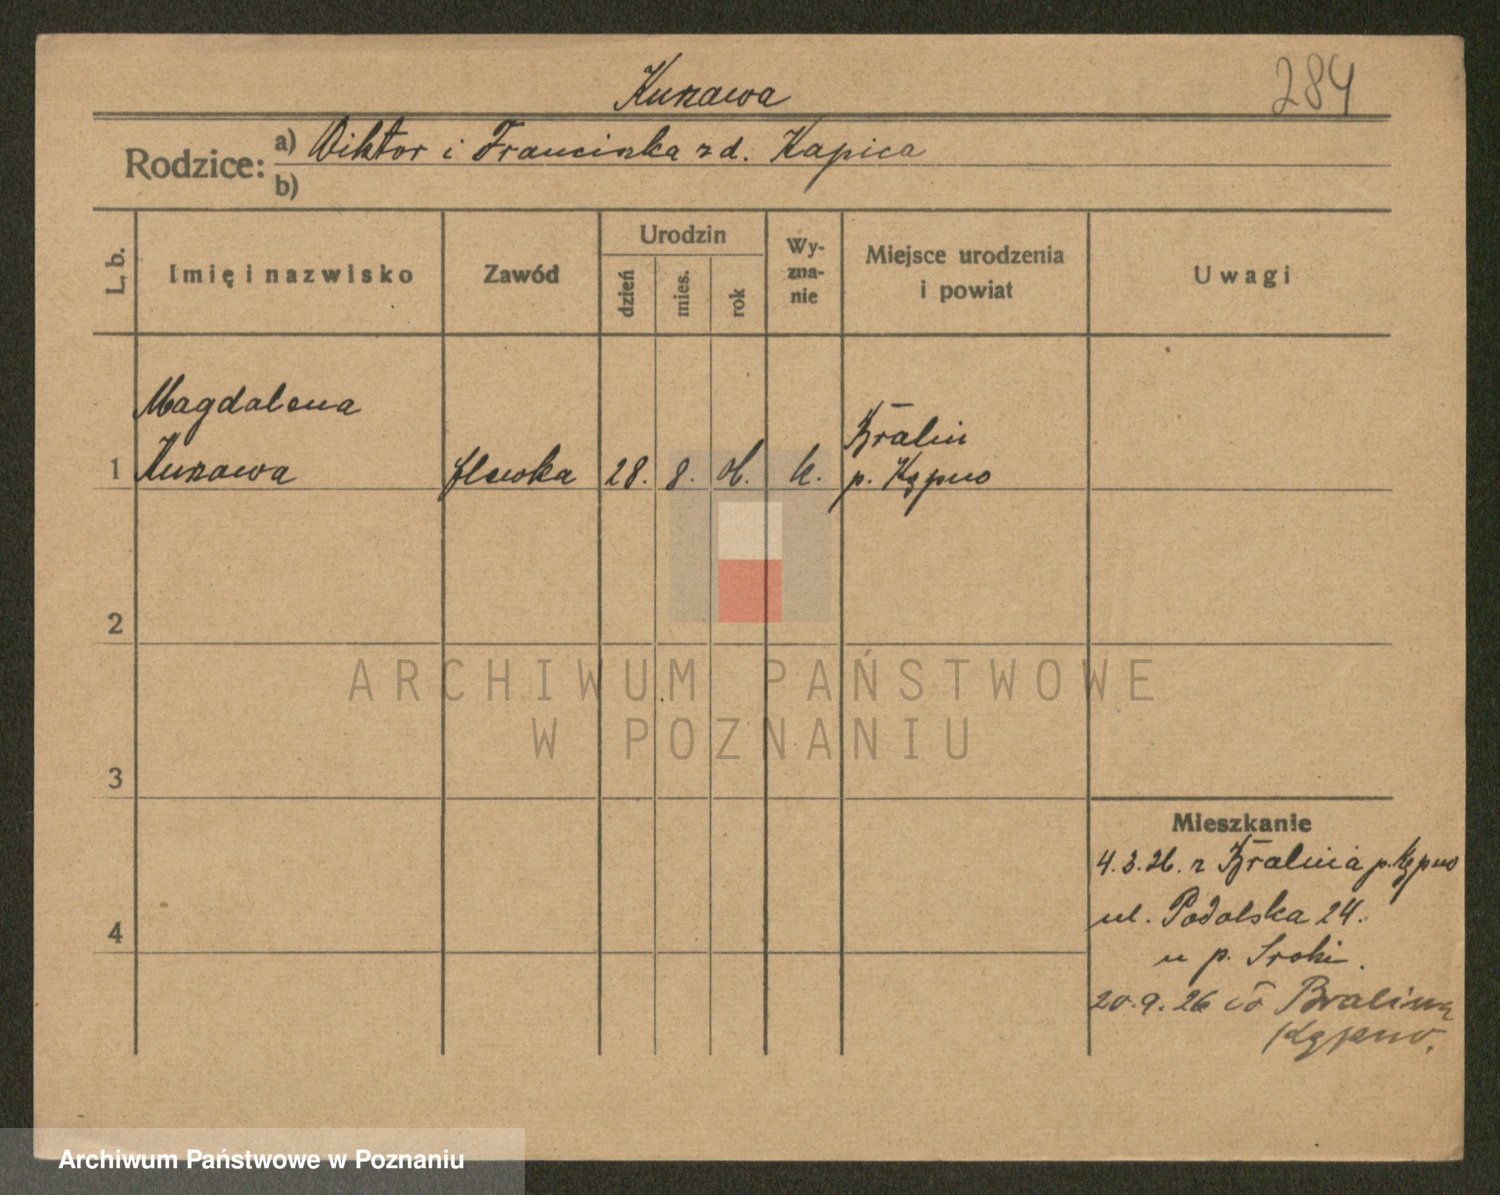 Kurzawa
284
Rodzice: a) Wiktor i Franciszka z d. Kapica
b)
L. b.
Imię i nazwisko
Zawód
Urodzin
dzień
mies.
rok
Wy-
zna-
nie
Miejsce urodzenia
i powiat
Uwagi
Magdalena
Bralin
1 Kurzawa 28. 8. k. p. Kępno
2
3
4
ARCHIWUM PAŃSTWOWE
W POZNANIU
Mieszkanie
4.3.26. z Bralina p. Kępno
ul. Podolska 24.
u p. Sroki.
20.9.26 do Bralina
Kępno.
Archiwum Państwowe w Poznaniu